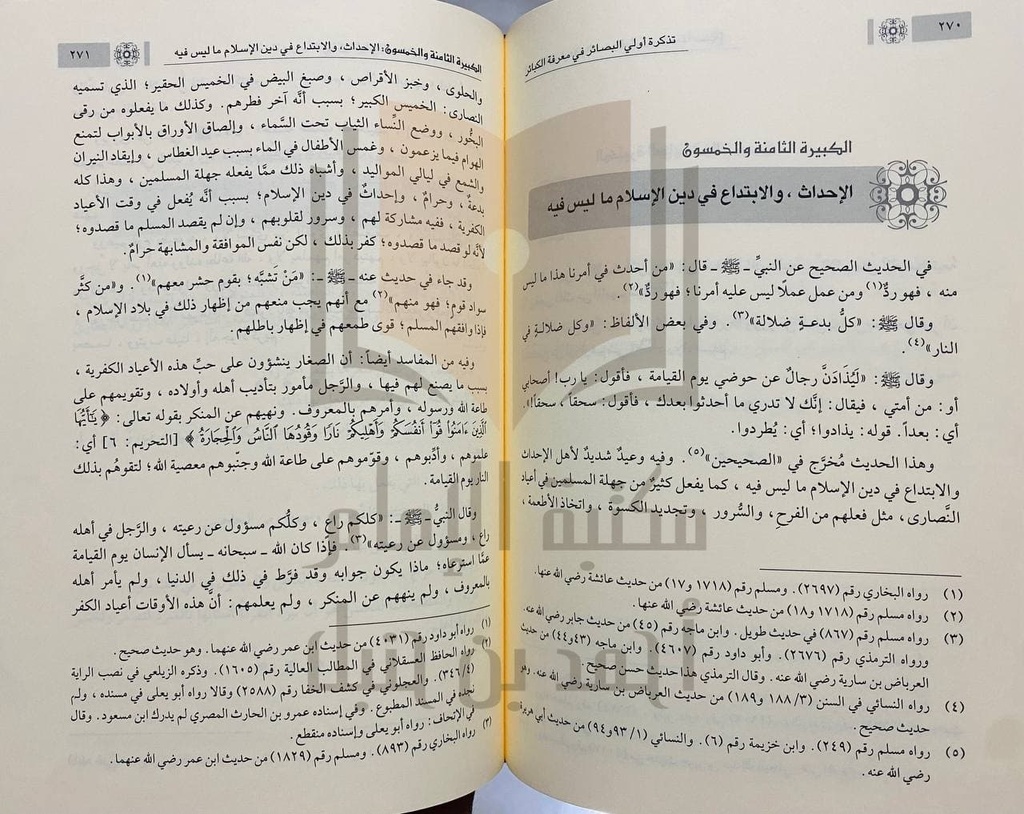 ٢٧٠
تذكرة أولي البصائر في معرفة الكبائر
الكبيرة الثامنة والخمسون
الإحداث ، والابتداع في دين الإسلام ما ليس فيه
في الحديث الصحيح عن النبيِّ ـ ﷺ ـ قال: «من أحدث في أمرنا هذا ما ليس
منه ، فهو ردٌّ(١) ومن عمل عملًا ليس عليه أمرنا؛ فهو ردٌّ»(٢).
وقال ﷺ: «كلُّ بدعةٍ ضلالة»(٣). وفي بعض الألفاظ: «وكل ضلالة في
النار»(٤).
وقال ﷺ: «لَيُذَادَنَّ رجالٌ عن حوضي يوم القيامة ، فأقول: يا رب! أصحابي
أو: من أمتي ، فيقال: إنَّك لا تدري ما أحدثوا بعدك ، فأقول: سحقاً ، سحقاً!».
أي: بعداً. قوله: يذادوا؛ أي: يُطردوا.
وهذا الحديث مُخرَّج في «الصحيحين»(٥). وفيه وعيدٌ شديدٌ لأهل الإحداث
والابتداع في دين الإسلام ما ليس فيه ، كما يفعل كثيرٌ من جهلة المسلمين في أعياد
النَّصارى، مثل فعلهم من الفرح، والسُّرور ، وتجديد الكسوة ، واتخاذ الأطعمة ،
(١) رواه البخاري رقم (٢٦٩٧). ومسلم رقم (١٧١٨ و١٧) من حديث عائشة رضي الله عنها.
(٢) رواه مسلم رقم (١٧١٨ و١٨) من حديث عائشة رضي الله عنها.
(٣) رواه مسلم رقم (٨٦٧) في حديث طويل. وابن ماجه رقم (٤٥) من حديث جابر رضي الله عنه.
ورواه الترمذي رقم (٢٦٧٦). وأبو داود رقم (٤٦٠٧). وابن ماجه (٤٣و٤٤) من حديث
العرباض بن سارية رضي الله عنه. وقال الترمذي هذا حديث حسن صحيح.
(٤) رواه النسائي في السنن (٣/ ١٨٨ و١٨٩) من حديث العرباض بن سارية رضي الله عنه. وهو
حديث صحيح.
(٥) رواه مسلم رقم (٢٤٩). وابن خزيمة رقم (٦). والنسائي (١/ ٩٣و٩٤) من حديث أبي هريرة
رضي الله عنه.
الكبيرة الثامنة والخمسون: الإحداث، والابتداع في دين الإسلام ما ليس فيه
٢٧١
والحلوى ، وخبز الأقراص ، وصبغ البيض في الخميس الحقير؛ الذي تسميه
النصارى: الخميس الكبير؛ بسبب أنَّه آخر فطرهم. وكذلك ما يفعلوه من رقى
البخُور ، ووضع النِّساء الثياب تحت السَّماء ، وإلصاق الأوراق بالأبواب لتمنع
الهوام فيما يزعمون ، وغمس الأطفال في الماء بسبب عيد الغطاس ، وإيقاد النيران
والشمع في ليالي المواليد ، وأشباه ذلك ممَّا يفعله جهلة المسلمين ، وهذا كله
بدعةٌ ، وحرامٌ ، وإحداثٌ في دين الإسلام؛ بسبب أنَّه يُفعل في وقت الأعياد
الكفرية ، ففيه مشاركة لهم ، وسرور لقلوبهم ، وإن لم يقصد المسلم ما قصدوه؛
لأنَّه لو قصد ما قصدوه؛ كفر بذلك ، لكن نفس الموافقة والمشابهة حرامٌ.
وقد جاء في حديث عنه ـ ﷺ ـ: «مَنْ تَشبَّه؛ بقوم حشر معهم»(١). و«من كثَّر
سواد قوم؛ فهو منهم»(٢) مع أنهم يجب منعهم من إظهار ذلك في بلاد الإسلام ،
فإذا وافقهم المسلم؛ قوى طمعهم في إظهار باطلهم.
وفيه من المفاسد أيضاً: أن الصغار ينشؤون على حبِّ هذه الأعياد الكفرية ،
بسبب ما يصنع لهم فيها ، والرَّجل مأمور بتأديب أهله وأولاده ، وتقويمهم على
طاعة الله ورسوله ، وأمرهم بالمعروف. ونهيهم عن المنكر بقوله تعالى: ﴿ يَٰٓأَيُّهَا
ٱلَّذِينَ ءَامَنُوا۟ قُوٓا۟ أَنفُسَكُمْ وَأَهْلِيكُمْ نَارًا وَقُودُهَا ٱلنَّاسُ وَٱلْحِجَارَةُ ﴾ [التحريم: ٦] أي:
علموهم ، وأدِّبوهم ، وقوّموهم على طاعة الله وجنّبوهم معصية الله؛ لتقوهُم بذلك
النار يوم القيامة.
وقال النبيُّ ـ ﷺ ـ: «كلكم راعٍ ، وكلُّكم مسؤول عن رعيته ، والرَّجل في أهله
راع ، ومسؤول عن رعيته»(٣). فإذا كان الله ـ سبحانه ـ يسأل الإنسان يوم القيامة
عمَّا استرعاه؛ ماذا يكون جوابه وقد فرَّط في ذلك في الدنيا ، ولم يأمر أهله
بالمعروف ، ولم ينههم عن المنكر ، ولم يعلمهم: أنَّ هذه الأوقات أعياد الكفر
(١) رواه أبو داود رقم (٤٠٣١) من حديث ابن عمر رضي الله عنهما. وهو حديث صحيح.
(٢) رواه الحافظ العسقلاني في المطالب العالية رقم (١٦٠٥). وذكره الزيلعي في نصب الراية
(٣٤٦/٤). والعجلوني في كشف الخفا رقم (٢٥٨٨) وقالا رواه أبو يعلى في مسنده ، ولم
نجده في المسند المطبوع. وفي إسناده عمرو بن الحارث المصري لم يدرك ابن مسعود. وقال
في الإتحاف: رواه أبو يعلى وإسناده منقطع.
(٣) رواه البخاري رقم (٨٩٣). ومسلم رقم (١٨٢٩) من حديث ابن عمر رضي الله عنهما.
مكتبة الإمام
أحمد بن حنبل